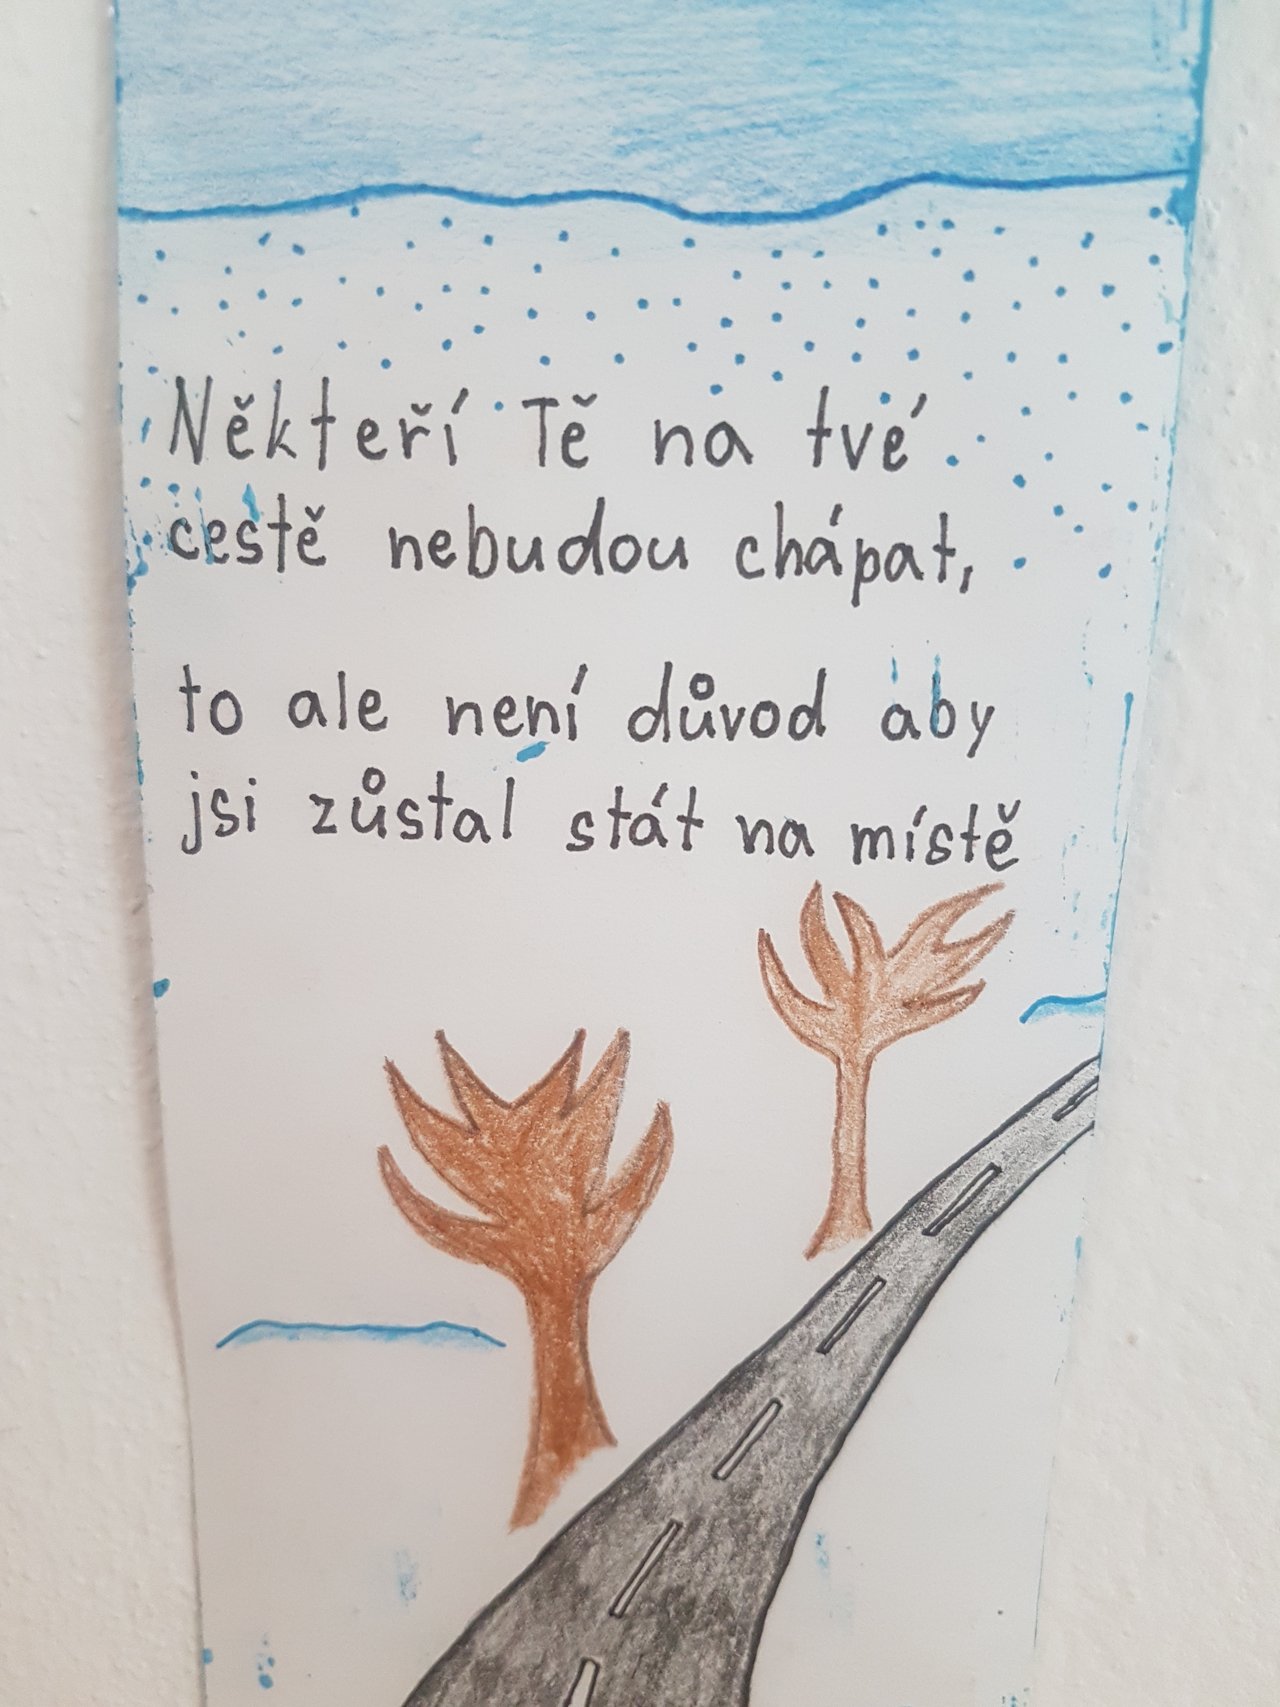 Někteří Tě na tvé
cestě nebudou chápat,
to ale není důvod aby
jsi zůstal stát na místě